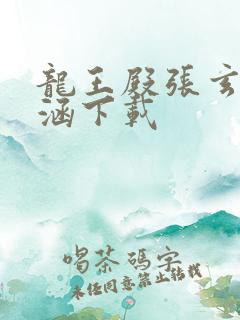 龍王殿張玄
涵下載
喝茶碼字
未经同意禁止轉載